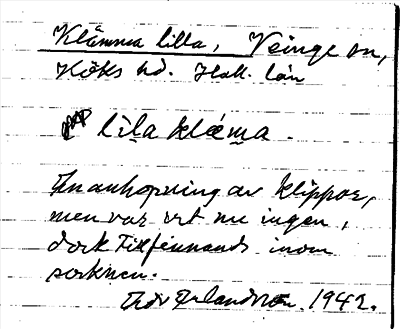 Klämma lilla, Veinge sn,
Höks hd. Hall. län
lila kläma.
En anhopning av klippor,
men var vet nu ingen,
dock inom
socknen.
Erlandsson. 1942.